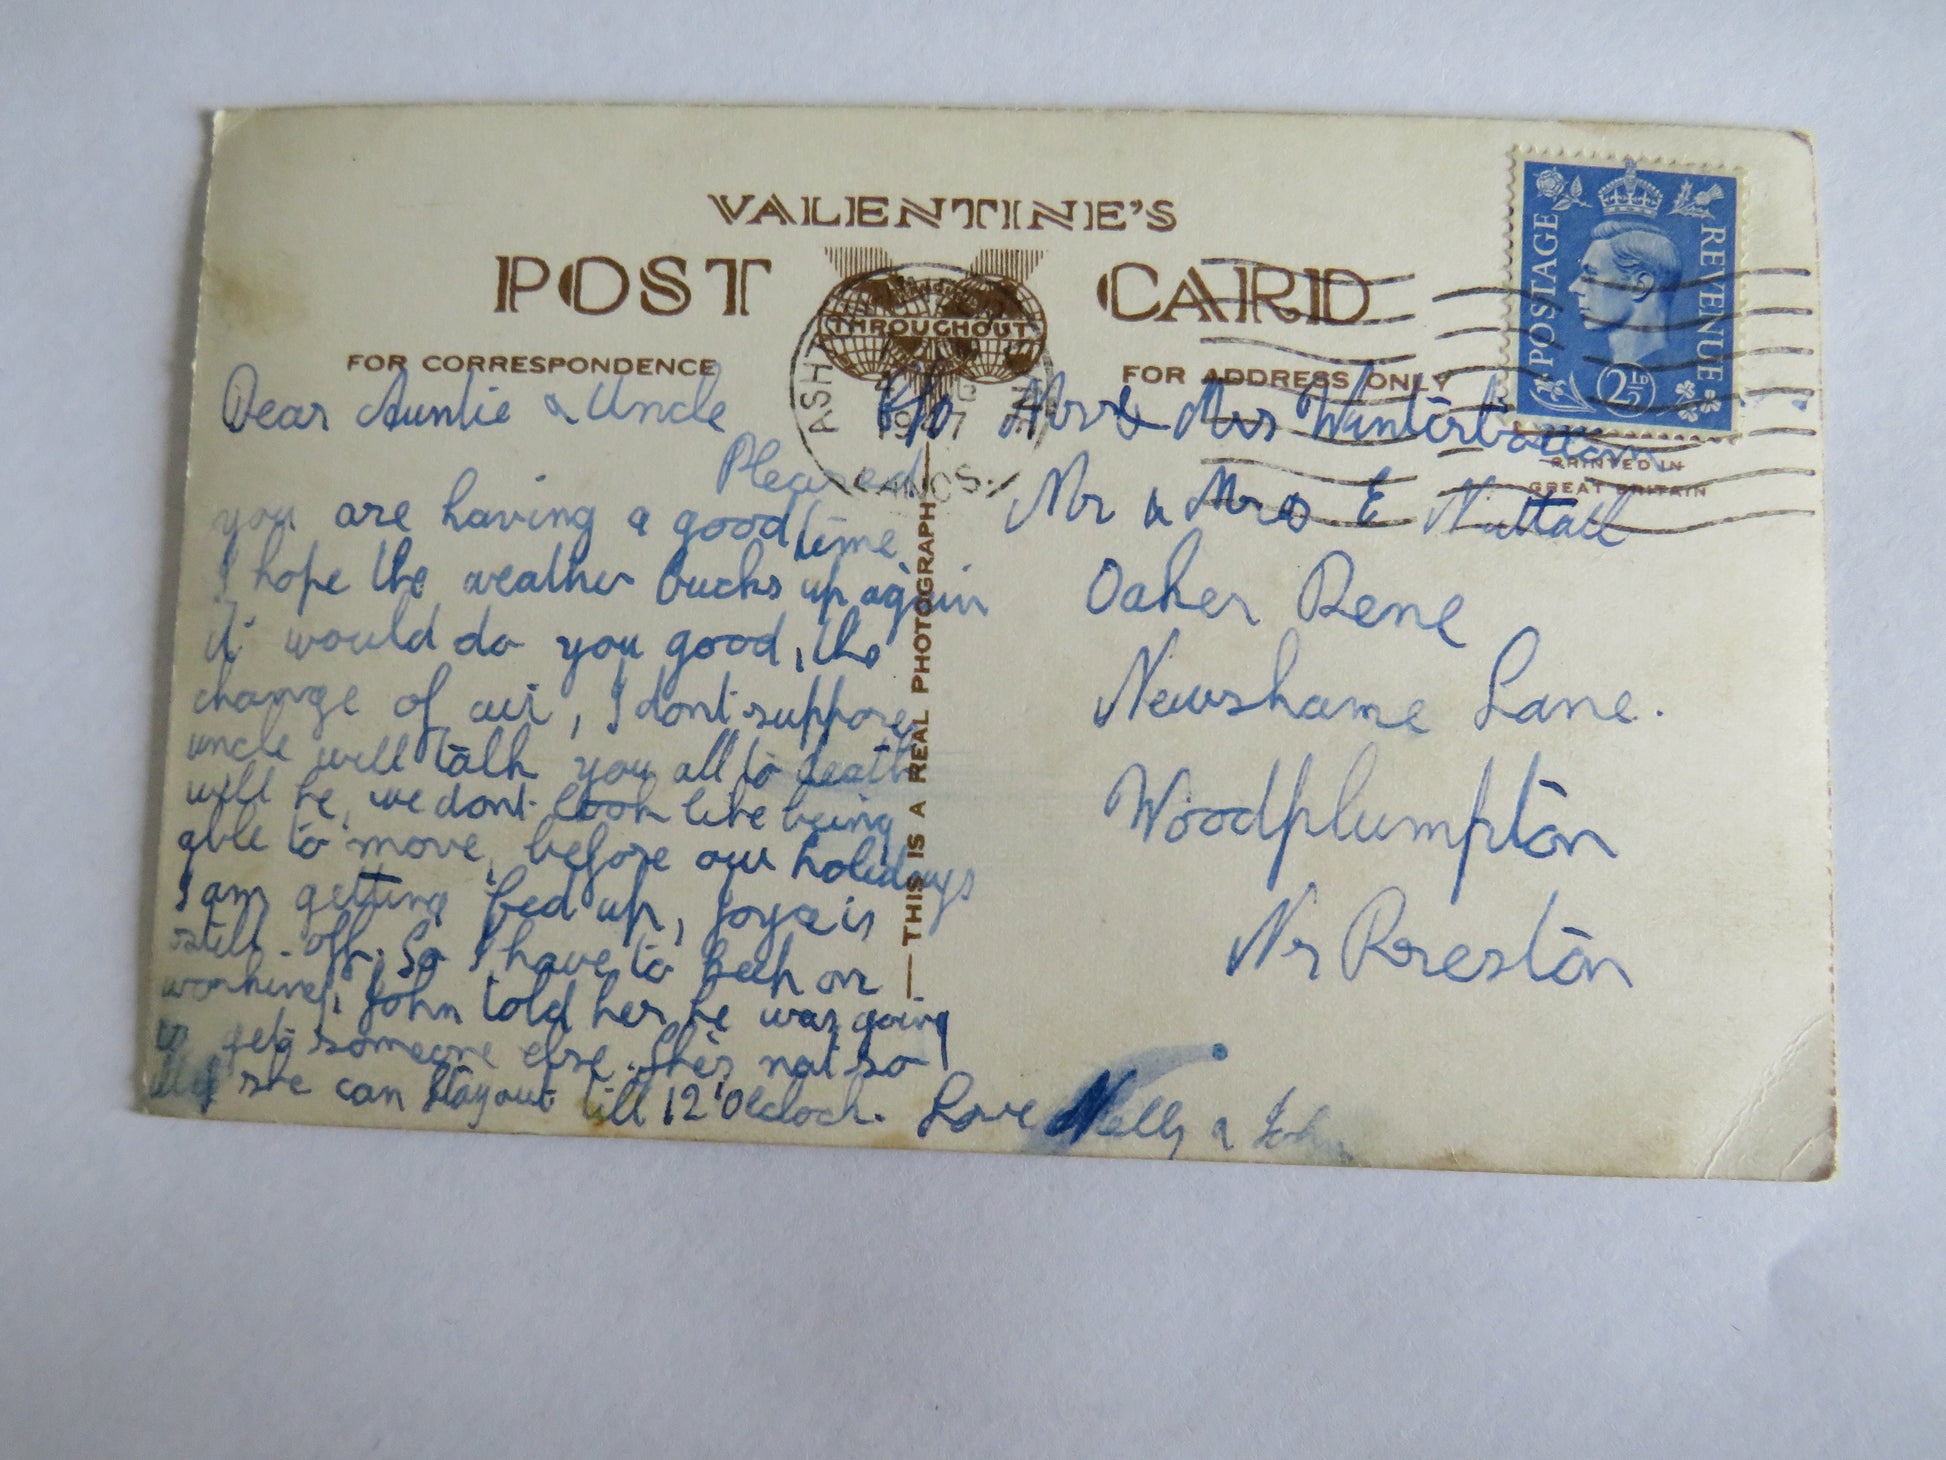 VALENTINE'S
POST CARD
THROUGHOUT
FOR CORRESPONDENCE
FOR ADDRESS ONLY
POSTAGE REVENUE
2½D
PRINTED IN
GREAT BRITAIN
ASHT
1947
LANCS.
THIS IS A REAL PHOTOGRAPH
Dear Auntie & Uncle
Pleased
you are having a good time
I hope the weather bucks up again
it would do you good, the
change of air, I dont suppose
uncle will talk you all to death
will he, we dont look like being
able to move, before our holidays
I am getting fed up, Joyce is
still off. So I have to keep on
working, John told her he was going
to get someone else. She's not so
she can stay out till 12 'Oclock.
Love Nelly & John
c/o Mr & Mrs Winterbottom
Mr & Mrs E Nuttall
Oaker Rene
Newshame Lane.
Woodplumpton
Nr Preston